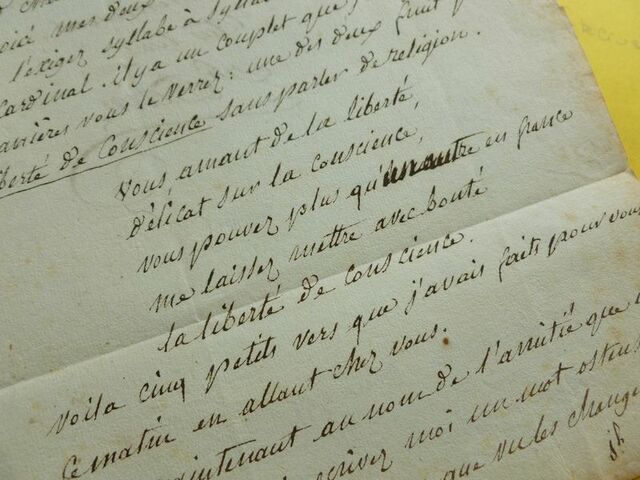 mes deux
l'exigez syllabe à
Cardinal. il y a un couplet que
vous le verrez: une des deux
liberté de Conscience sans parler de religion.
Vous, amant de la liberté,
délicat sur la conscience,
vous pouvez plus qu'un autre en france
me laisser mettre avec bonté
la liberté de conscience.
Voila cinq petits vers que j'avais faits pour vous
Ce matin en allant chez vous.
maintenant au nom de l'amitié que
moi un mot
que vu les